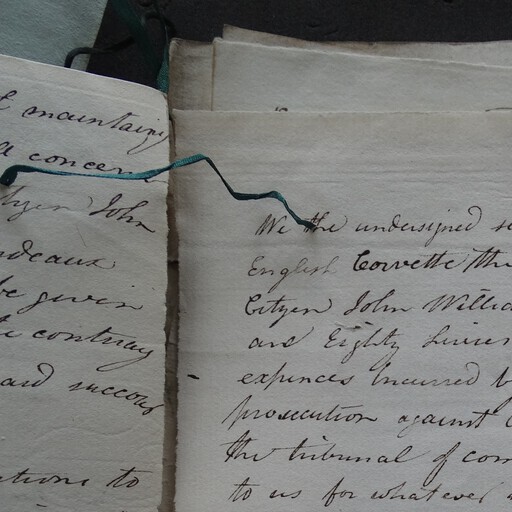 maintaing
a concern
Citizen John
Bordeaux
be given
contrary
and succour
to
We the undersigned
English Corvette the
Citizen John Willia
and Eighty Livres
expences incurred b
prosecution against
the tribunal of com
to us for whatever